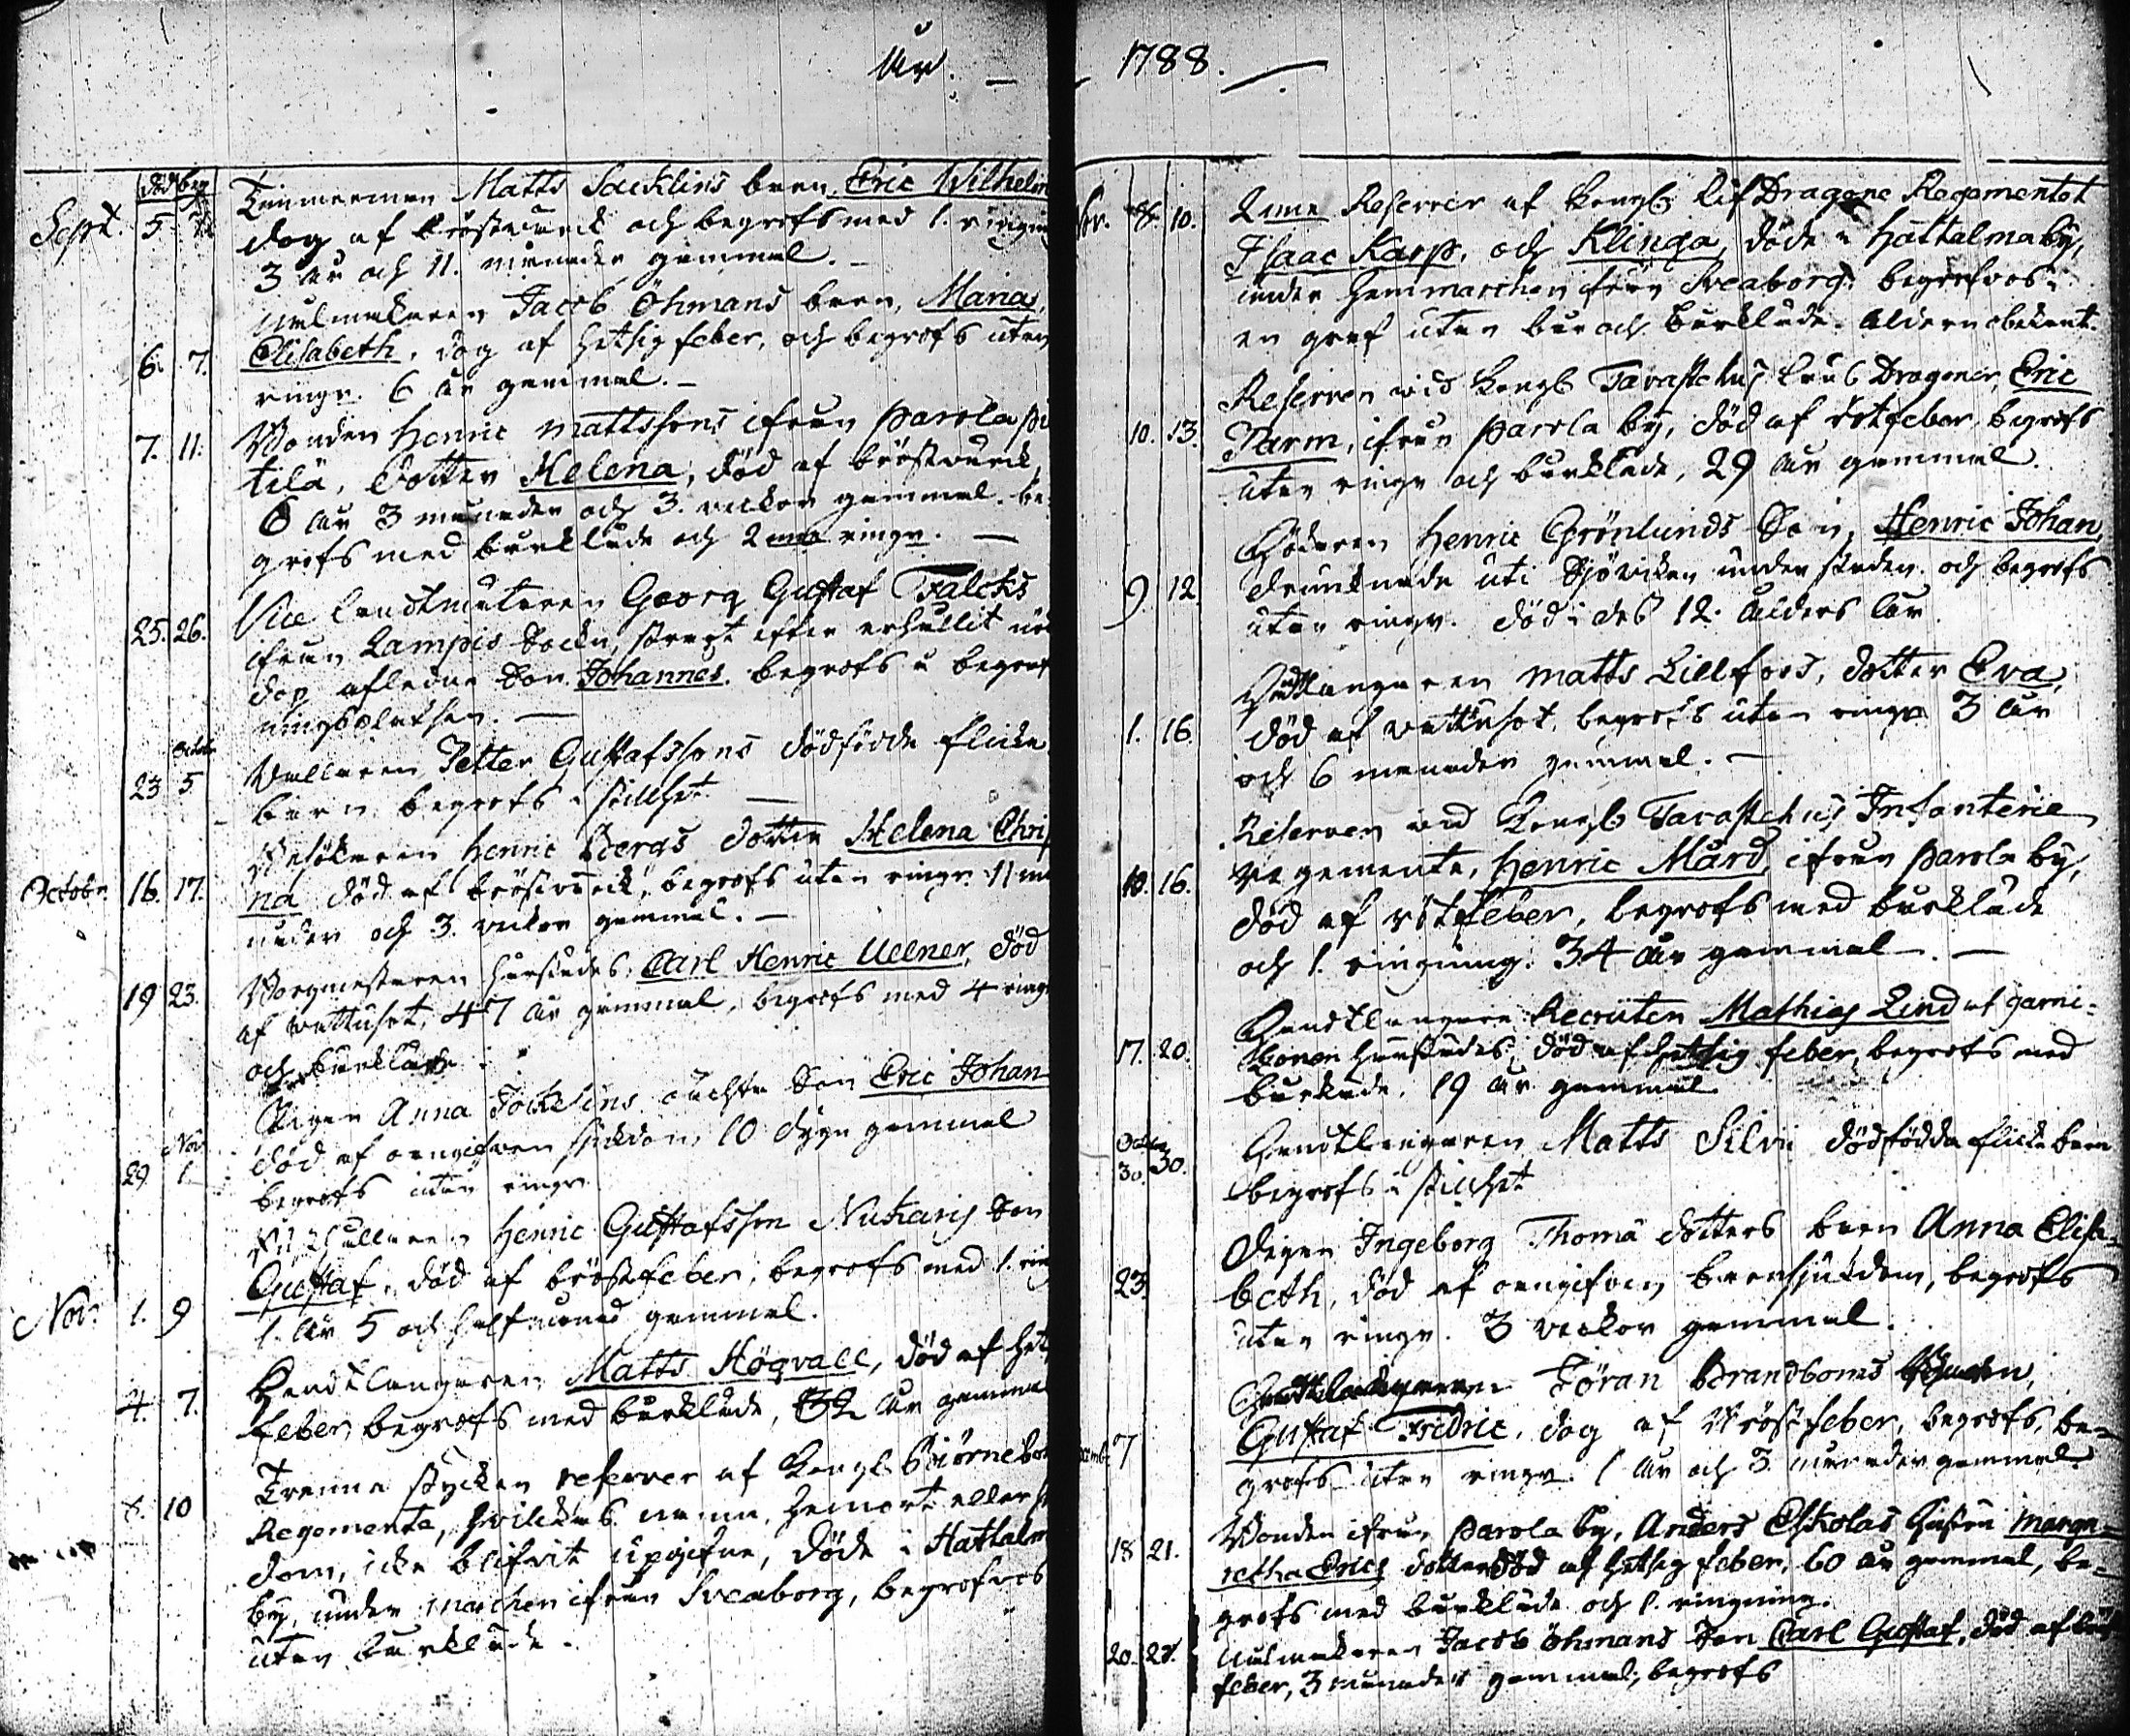 År. – 1788.
död beg
Sept. 5 Timmerman Matts Sacklins barn, Eric Wilhelm
dog af bröstwärck och begrofs med 1. ringni
3 år och 11. månader gammal. –
Jacob Öhmans barn, Maria
6. 7. Elisabeth, dog af hetsig feber, och begrofs utan
ringn. 6 år gammal. –
7. 11. Bonden Henric Mattssons ifrån Parola
tilä, dotter Helena, död af bröstwärck,
6 år 3 månader och 3. veckor gammal. be-
grofs med bårkläde och 2 ringn. –
Vice Landtmätaren Georg Gustaf Falcks
25. 26. ifrån Lampis Sockn, strax efter erhållit
dop afledne Son Johannes. begrofs i begraf
ningsplatsen. –
Octobr
23 5 Petter Gustafssons dödfödde flicke
barn begrofs i stillhet –
Besökaren Henric Bergs dotter Helena Chris
Octobr. 16. 17. na död af bröstwärck, begrofs utan ringn. 11 må
nader och 3. veckor gammal. –
Borgmästaren härstädes, Carl Henric Ullner, död
19 23. af vattusot, 47 år gammal, begrofs med 4 ringn
och bårkläde.
Pigan Anna Tockelins oächta Son Eric Johan
Nov
29 1. död af oangifven sjukdom, 10 dygn gammal
begrofs utan ringn.
Henric Gustafsson Nukaris Son
Nov. 1. 9 Gustaf, död af bröstfeber, begrofs med 1. ring
1. år 5 och half månad gammal.
4. 7. Handtlangaren Matts Högvall, död af het
feber, begrofs med bårkläde, 32 år gammal
Trenne stycken reserver af Kongl. Biörnebor
8. 10 Regemente, hvilckas namn, hemort eller
dom, icke blifvit upgifne, döde i Hattalm
by, under marchen ifrån Sveaborg, begrofvos
utan bårkläde.
Nov. 8. 10. 2 Reserver af Kongl. Lif Dragone Regementet
Isaac Karp, och Klinga, döde i Hattalma by,
under hemmarchen ifrån Sveaborg, begrofvos i
en graf utan bår och bårkläde. åldern obekant.
Reserven vid Kongl. Tavastehus Läns Dragoner, Eric
10. 13. Parm, ifrån Parola by, död af rötfeber, begrofs
utan ringn och bårkläde, 29 år gammal.
Henric Grönlunds Son, Henric Johan,
9 12 drunknade uti Sjöviken under staden, och begrofs
utan ringn. död i des 12. ålders år
Handtlangaren Matts Lillfors, dotter Eva,
1. 16. död af vattusot, begrofs utan ringn 3 år
och 6 månader gammal. –
Reserven vid Kongl. Tavastehus Infanterie
10. 16. regemente, Henric Mård, ifrån Parola by,
död af rötfeber, begrofs med bårkläde
och 1. ringning. 34 år gammal. –
Handtlangare Recruten Mathias Lind af garni-
17. 20. sonen härstädes, död af hetsig feber, begrofs med
bårkläde, 19 år gammal
Octobr
30. 30. Handtlangaren Matts Silvi dödfödda flicke barn
begrofs i stillhet
Pigan Ingeborg Thomä dotters barn Anna Elisa-
23. beth, död af oangifven barnsjukdom, begrofs
utan ringn. 3 veckor gammal.
Handtlangaren Jöran Brandboms
7 Gustaf Fredric, dog af Bröstfeber, begrofs, be-
grofs utan ringn. 1 år och 3. månader gammal.
18 21. Bonden ifrån Parola by, Anders Eskolas hustru Marga-
retha Erics dotter död af hetsig feber, 60 år gammal, be-
grofs med bårkläde och 1. ringning.
20. 28. Jacob Öhmans Son Carl Gustaf, död af bröst
feber, 3 månader gammal, begrofs